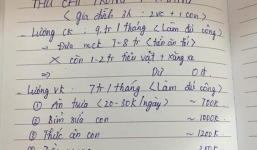 THU CHI TRONG 1 THÁNG
(gia đình 3ng : 2vc + 1 con)
- Lương CK : 9.tr / 1 tháng (Làm đủ công)
→ Đưa mck 7-8 tr (tiền ăn tr)
X còn 1-2 tr tiêu vặt + xăng xe
⇒ Dư 0 đ.
- Lương VK : 7tr / 1 tháng (Làm đủ công)
① Ăn trưa (20-30k/ngày) ~ 700k
② Bỉm sữa con ~ 1000k
③ Thức ăn con ~ 1200k